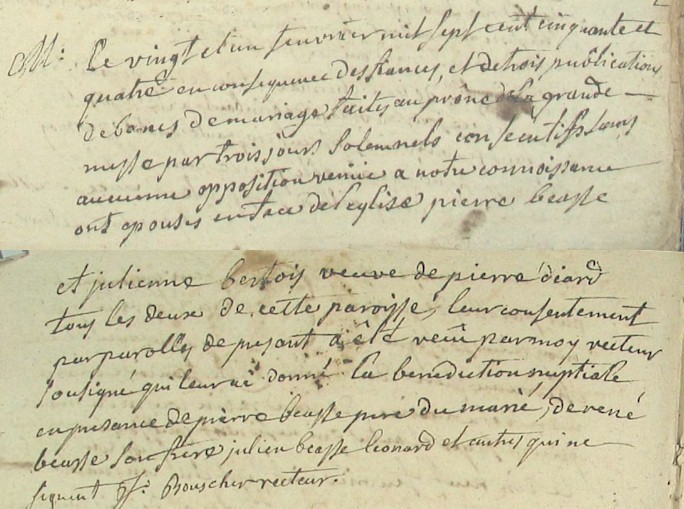 M: Le vingt et un fevrier mil sept cent cinquante et
quatre en consequence des fiances, et de trois publications
de bancs de mariage faites au prône de la grande
messe par trois jours solemnels consecutifs sans
aucunne opposition venüe a notre connoissance
ont epousés en face de l'eglise pierre beasse
et julienne bertois veuve de pierre diard
tous les deux de cette paroisse, leur consentement
par parolles de present a été reçû par moy recteur
sousigné qui leur ai donné la benediction nuptiale
en presance de pierre beasse pere du marié, de rené
beasse son frere julien beasse leonard et autres qui ne
signent Bouscher recteur.